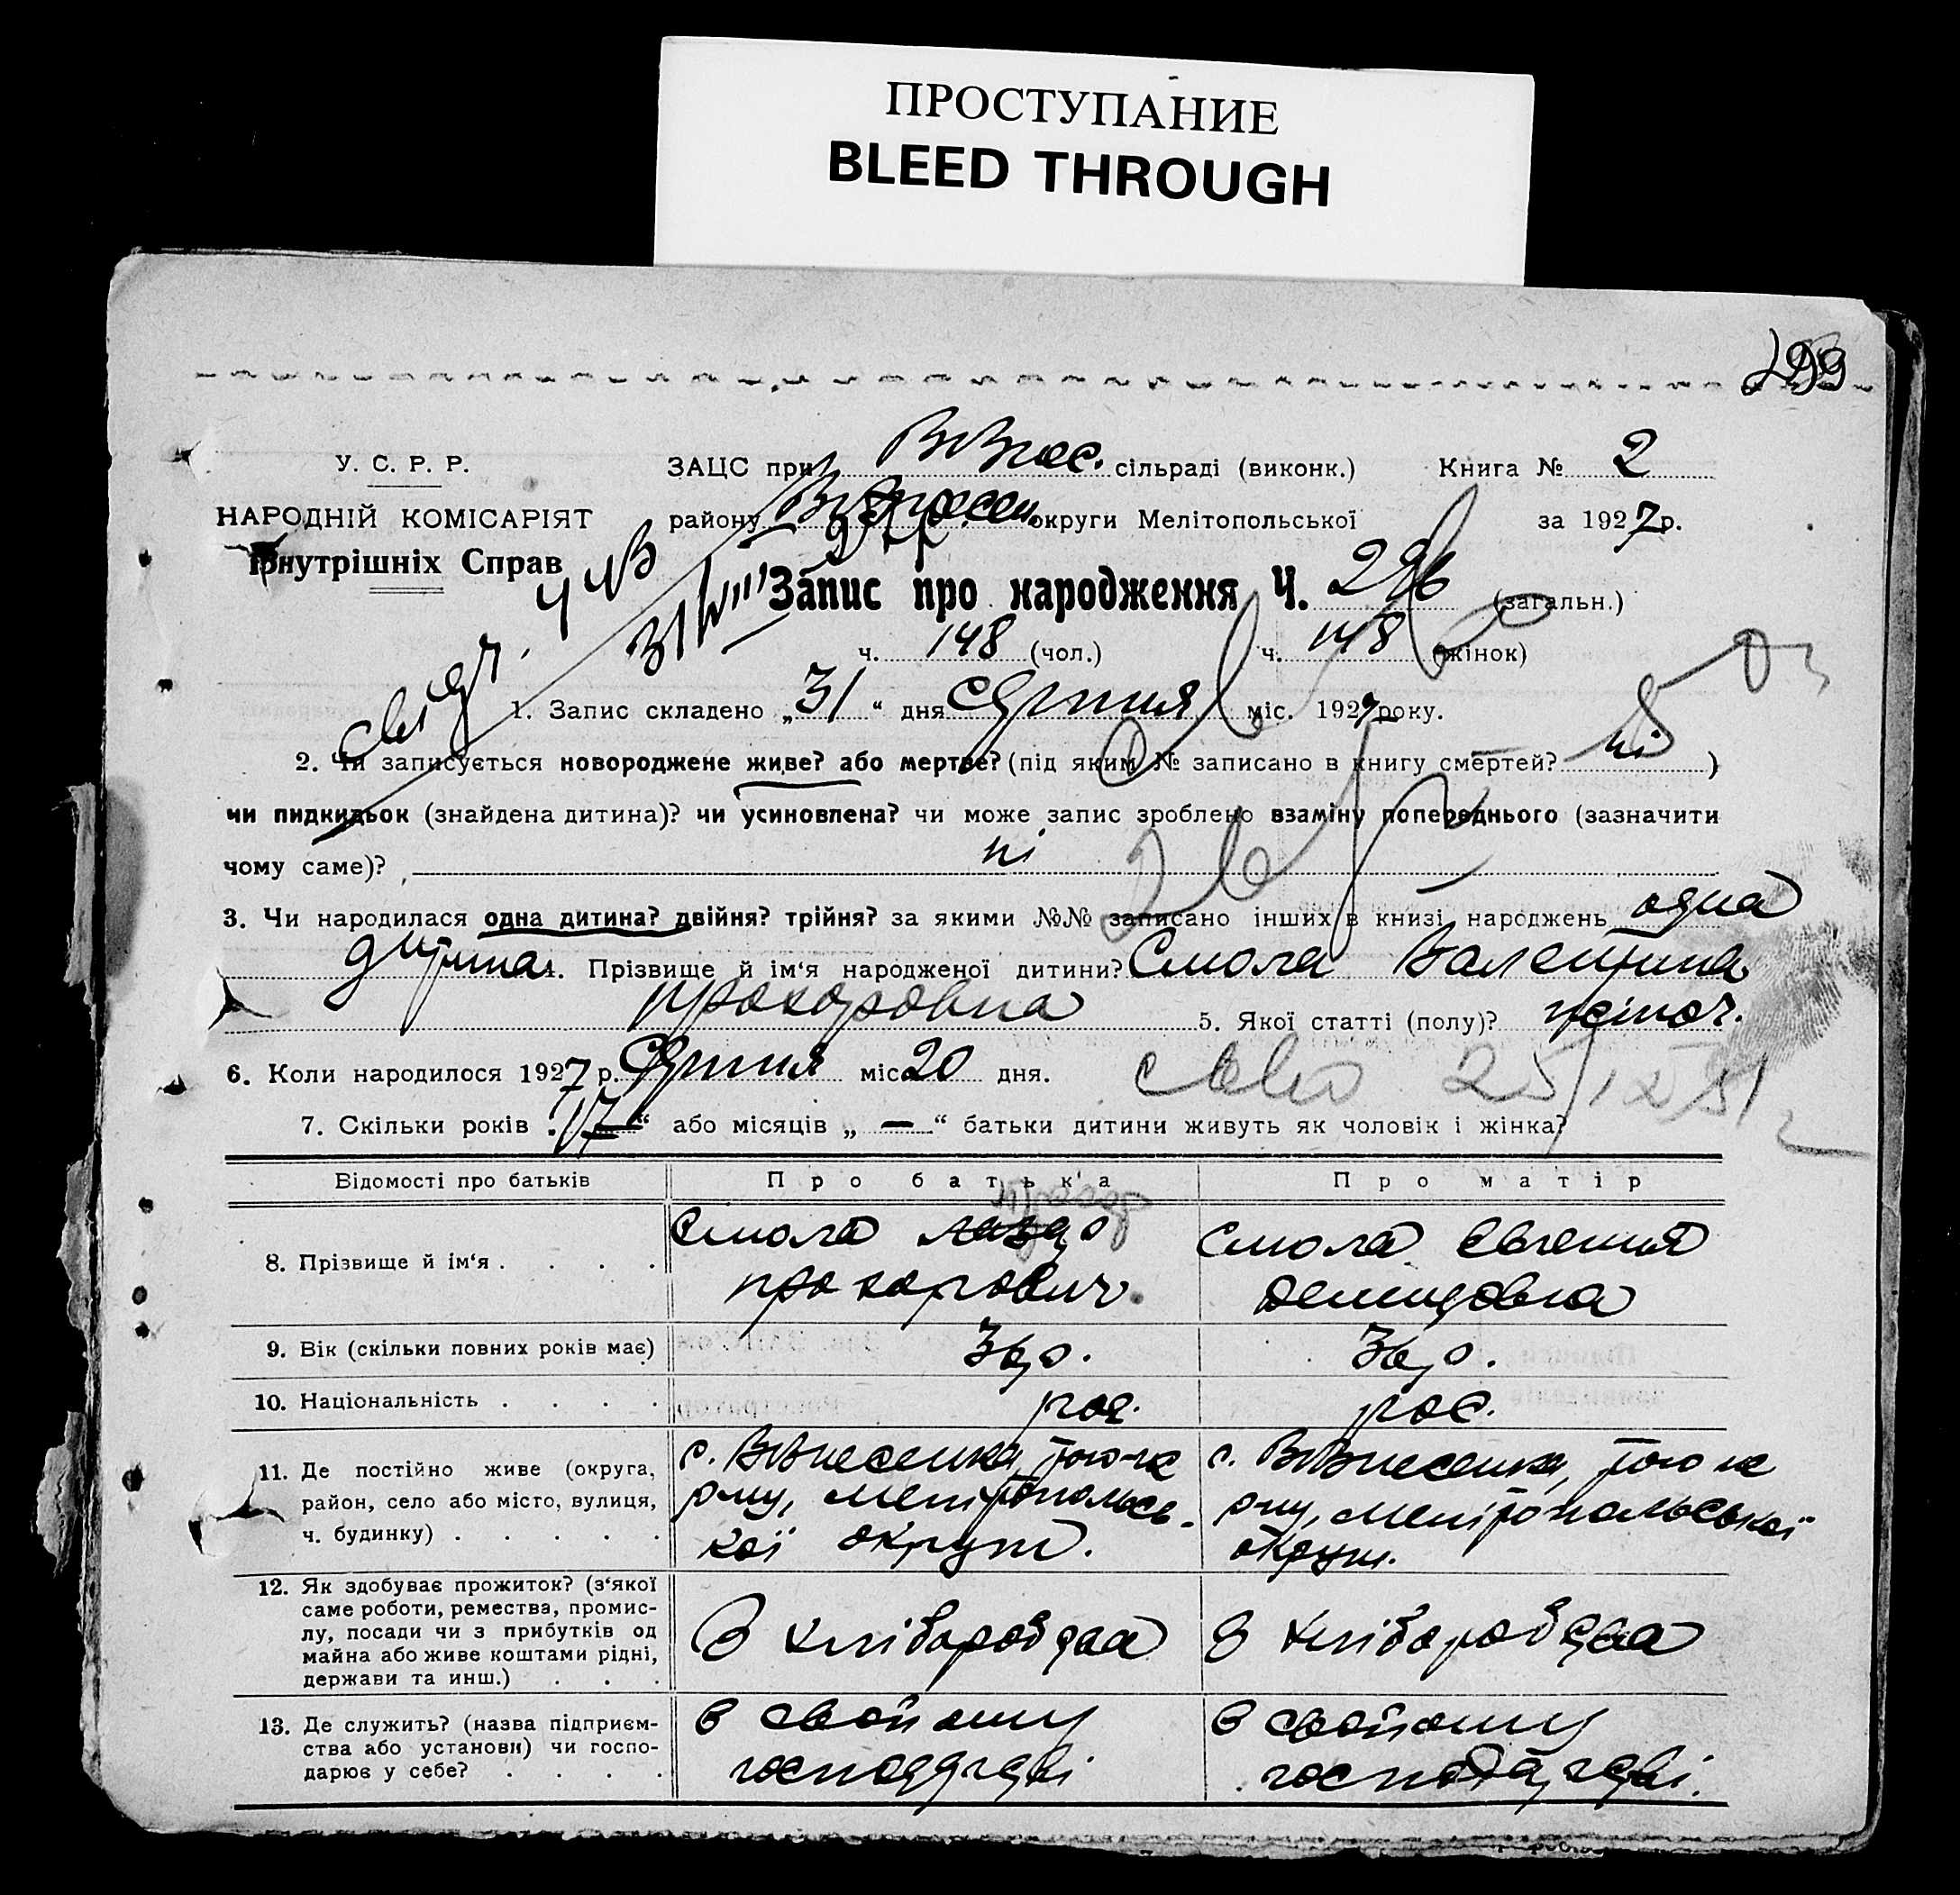 ПРОСТУПАНИЕ
BLEED THROUGH
299
У. С. Р. Р.
НАРОДНІЙ КОМІСАРІЯТ
Внутрішніх Справ
ЗАЦС при ВВнес. сільраді (виконк.) Книга № 2
району округи Мелітопольської за 1927 р.
Запис про народження Ч. 296 (загальн.)
ч. 148 (чол.) ч. 148 (жінок)
1. Запис складено „31“ дня Серпня міс. 1927 року.
2. Чи записується новороджене живе? або мертве? (під яким № записано в книгу смертей? ні )
чи пидкидьок (знайдена дитина)? чи усиновлена? чи може запис зроблено взаміну попереднього (зазначити
чому саме)? ні
3. Чи народилася одна дитина? двійня? трійня? за якими №№ записано інших в книзі народжень одна
дитина 4. Прізвище й ім'я народженої дитини? Смола Валентина
прохоровна 5. Якої статті (полу)? жіноч.
6. Коли народилося 1927 р. Серпня міс. 20 дня.
7. Скільки років „17“ або місяців „ — “ батьки дитини живуть як чоловік і жінка?
Відомості про батьків Про батька Про матір
8. Прізвище й ім'я . . . .
Смола
прохорович
Смола Євгенія
Демидовна
9. Вік (скільки повних років має) 36 р. 36 р.
10. Національність . . . . рос. рос.
11. Де постійно живе (округа,
район, село або місто, вулиця,
ч. будинку) . . . . .
с. ВВнесенка, того-ж
р-ну, мелітопольсь-
кої округи.
с. ВВнесенка, того ж
р-ну, мелітопольської
округи.
12. Як здобуває прожиток? (з'якої
саме роботи, ремества, промис-
лу, посади чи з прибутків од
майна або живе коштами рідні,
держави та инш.) . . .
З хліборобства
З хліборобства
13. Де служить? (назва підприєм-
ства або установи) чи госпо-
дарює у себе? . . . .
в свойому
господарстві
в свойому
господарстві.